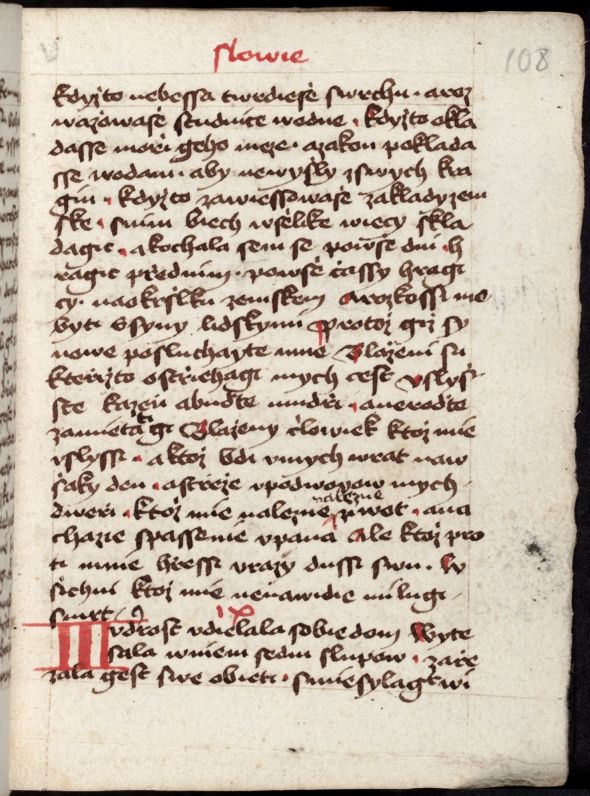 slowie
108
kdyžto nebessa twrdieše swrchu · a roz
wažowaše studnice wodne · kdyžto okla
dasse mori geho meze · a zakon poklada
sse wodam · aby newyšly z swych kra
gin · kdyžto zawiessowaše zaklady zem
ske · s nim biech wšelike wiecy skla
dagic · a kochala sem se po wše dni · h
ragic pred nim · po wše cassy hragi
cy · na okršlku zemskem a rozkossi me
byti s syny lidskymi Protož giž sy
nowe posluchayte mne Blaženi su
kterižto ostriehagi mych cest Uslyš
ste kazen a budte mudri · a nerodte
zamietagi Blaženy člowiek ktož mie
uslyssi · a ktož bdi u mych wrat na w
šaky den · a střeže u podwogow mych
dweri · ktož mie nalezne nalezne žiwot · a na
chazie spassenie u pana Ale ktož pro
ti mnie hřessi urazy dussi swu · W
sichni ktož mie nenawidie milugi
smrt
IX
Mudrost udielala sobie dom Wyte
sala w niem sedm slupow · zaře
zala gest swe obieti · smiesyla gt wi